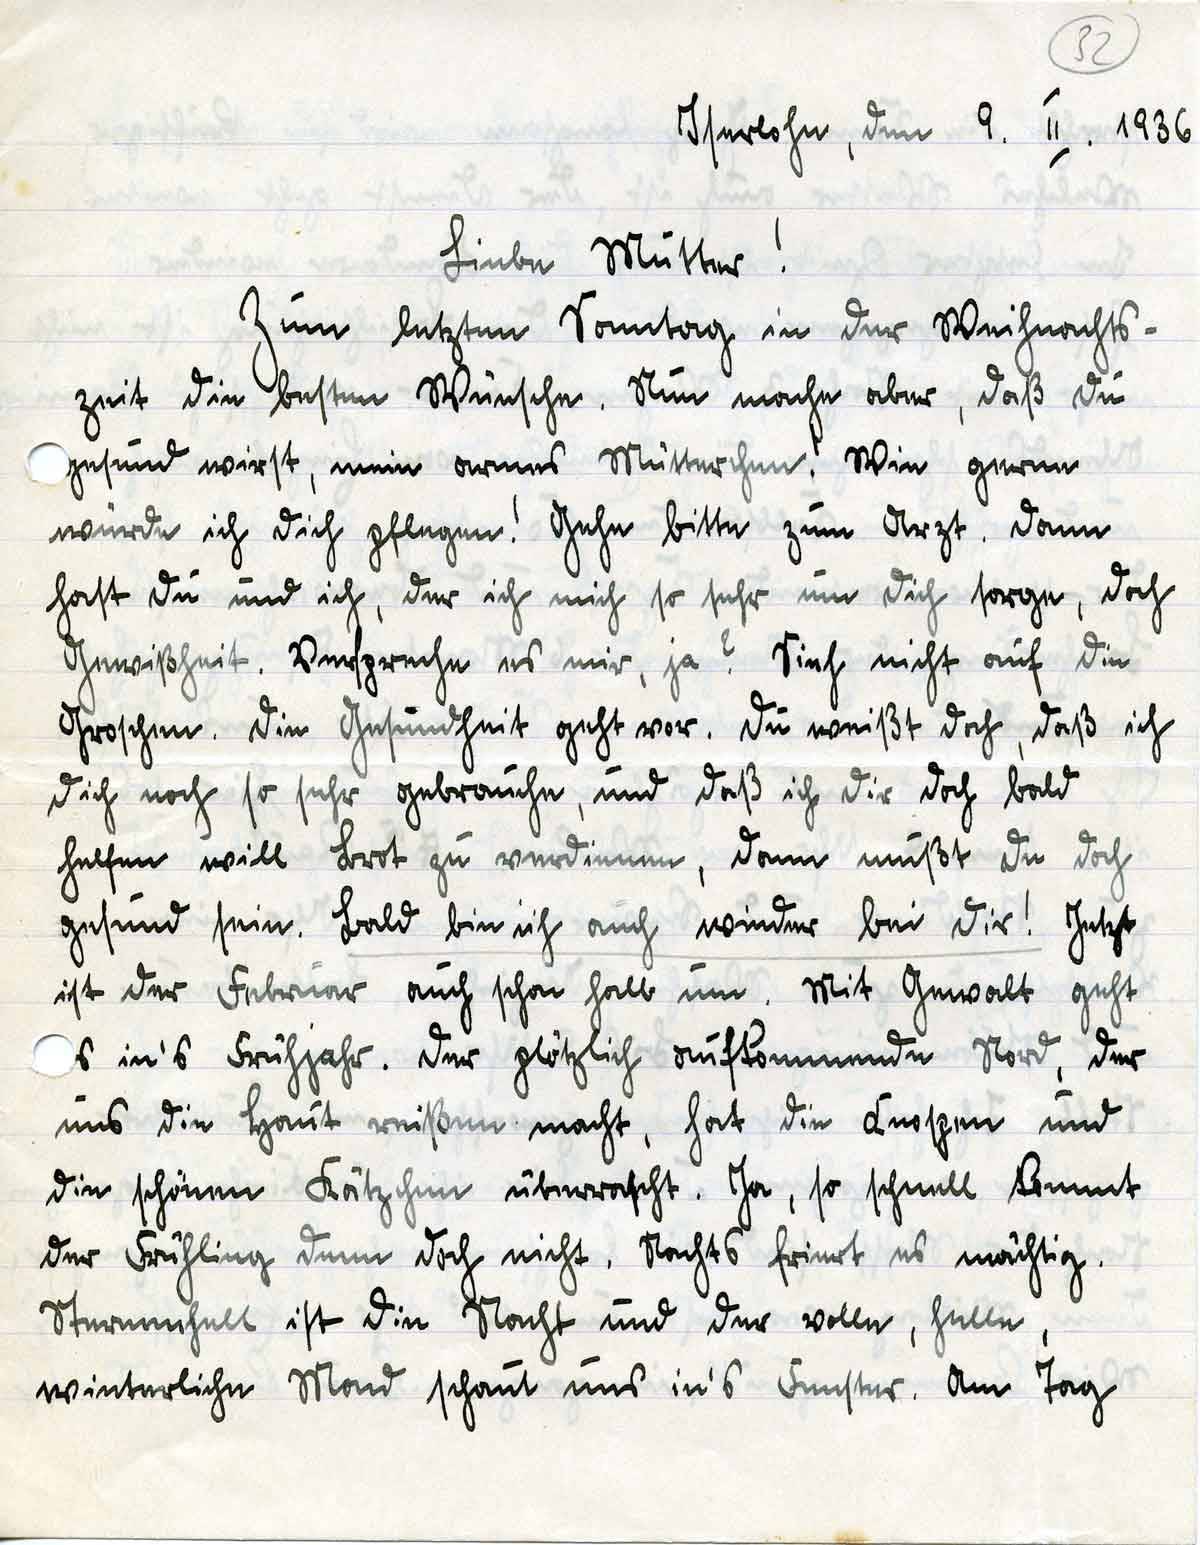 32
Iserlohn, den 9. II. 1936
Liebe Mutter!
Zum letzten Sonntag in der Weihnachts-
zeit die besten Wünsche. Nun mache aber, daß Du
gesund wirst, mein armes Mütterchen! Wie gerne
würde ich Dich pflegen! Gehe bitte zum Arzt. Dann
hast Du und ich, der ich mich so sehr um Dich sorge, doch
Gewißheit. Verspreche es mir, ja? Sieh nicht auf die
Groschen. Die Gesundheit geht vor. Du weißt doch, daß ich
Dich noch so sehr gebrauche, und daß ich Dir doch bald
helfen will Brot zu verdienen, dann mußt Du doch
gesund sein. Bald bin ich auch wieder bei Dir! Jetzt
ist der Februar auch schon halb um. Mit Gewalt geht
s in's Frühjahr. Der plötzlich aufkommende Nord, der
uns die Haut reißen macht, hat die Knospen und
die schönen Kätzchen überrascht. Ja, so schnell kommt
der Frühling denn doch nicht. Nachts friert es mächtig.
Sternenhell ist die Nacht und der volle, helle,
winterliche Mond schaut uns in's Fenster. Am Tag